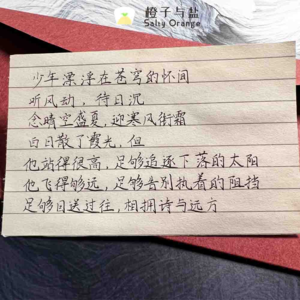 橙子与盐
Salty Orange
少年漂浮在苍穹的怀间
听风劲，待日沉
念晴空盛夏，迎寒风街霜
白日散了霞光，但
他站得很高，足够追逐下落的太阳
他飞得够远，足够告别执着的阻挡
足够目送过往，相拥诗与远方